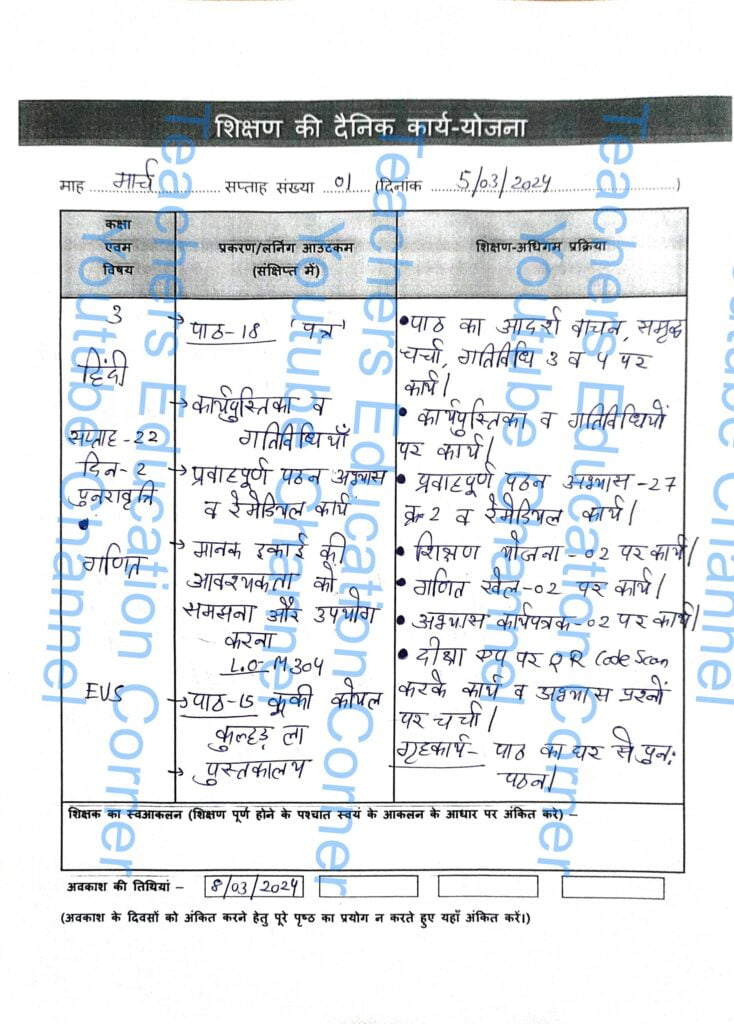 शिक्षण की दैनिक कार्य-योजना
माह मार्च सप्ताह संख्या 01 (दिनांक 5/03/2024)
कक्षा
एवम
विषय
प्रकरण/लर्निंग आउटकम
(संक्षिप्त में)
शिक्षण-अधिगम प्रक्रिया
3
हिंदी
सप्ताह-22
दिन-2
पुनरावृत्ति
गणित
EVS
→ पाठ-18 'पत्र'
→ कार्यपुस्तिका व
गतिविधियाँ
→ प्रवाहपूर्ण पठन अभ्यास
व रेमेडियल कार्य
→ मानक इकाई की
आवश्यकता को
समझना और उपयोग
करना
L.O-M304
→ पाठ-15 कूकी कोयल
कुल्हड़ ला
→ पुस्तकालय
• पाठ का आदर्श वाचन, समूह
चर्चा, गतिविधि 3 व 4 पर
कार्य|
• कार्यपुस्तिका व गतिविधियों
पर कार्य|
• प्रवाहपूर्ण पठन अभ्यास-27
क्र-2 व रेमेडियल कार्य|
• शिक्षण योजना-02 पर कार्य|
• गणित खेल-02 पर कार्य|
• अभ्यास कार्यपत्रक-02 पर कार्य|
• दीक्षा एप पर QR Code Scan
करके कार्य व अभ्यास प्रश्नों
पर चर्चा|
गृहकार्य- पाठ का घर से पुन:
पठन|
शिक्षक का स्वआकलन (शिक्षण पूर्ण होने के पश्चात स्वयं के आकलन के आधार पर अंकित करे) –
अवकाश की तिथियां – 8/03/2024
(अवकाश के दिवसों को अंकित करने हेतु पूरे पृष्ठ का प्रयोग न करते हुए यहाँ अंकित करें।)
Teachers Education Corner
Youtube Channel
Teachers Education Corner
Youtube Channel
Teachers Education Corner
Youtube Channel